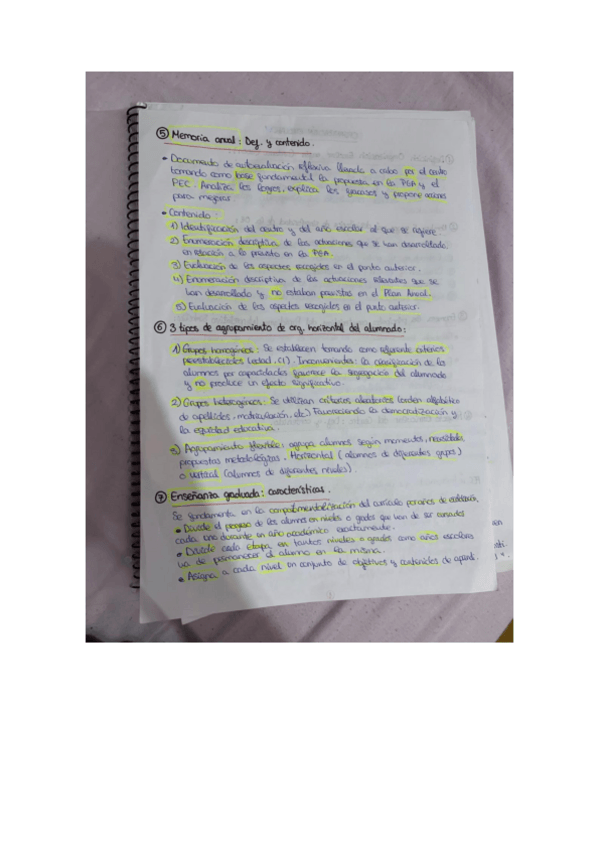 ⑤ Memoria anual: Def. y contenido.
• Documento de autoevaluación reflexiva llevado a cabo por el centro
tomando como base fundamental la propuesta en la PGA y el
PEC. Analiza los logros, explica los fracasos y propone acciones
para mejorar.
• Contenido:
1) Identificación del centro y del año escolar al que se refiere.
2) Enumeración descriptiva de las actuaciones que se han desarrollado
en relación a lo previsto en la PGA.
3) Evaluación de los aspectos recogidos en el punto anterior.
4) Enumeración descriptiva de las actuaciones relevantes que se
han desarrollado y no estaban previstas en el Plan Anual.
5) Evaluación de los aspectos recogidos en el punto anterior.
⑥ 3 tipos de agrupamiento de org. horizontal del alumnado:
1) Grupos homogéneos: Se establecen tomando como referente criterios
preestablecidos (edad...). Inconvenientes: la clasificación de los
alumnos por capacidades favorece la segregación del alumnado
y no produce un efecto significativo.
2) Grupos heterogéneos: Se utilizan criterios aleatorios (orden alfabético
de apellidos, matriculación, etc) Favoreciendo la democratización y
la equidad educativa.
3) Agrupamiento flexible: agrupa alumnos según momentos, necesidades,
propuestas metodológicas. Horizontal (alumnos de diferentes grupos)
o vertical (alumnos de diferentes niveles).
⑦ Enseñanza graduada: características.
Se fundamenta en la compartimentalización del currículo por años de escolaridad.
• Divide el progreso de los alumnos en niveles o grados que han de ser cursados
cada uno durante un año académico exactamente.
• Divide cada etapa en tantos niveles o grados como años escolares
va de permanecer el alumno en la misma.
• Asigna a cada nivel un conjunto de objetivos y contenidos de aprend.